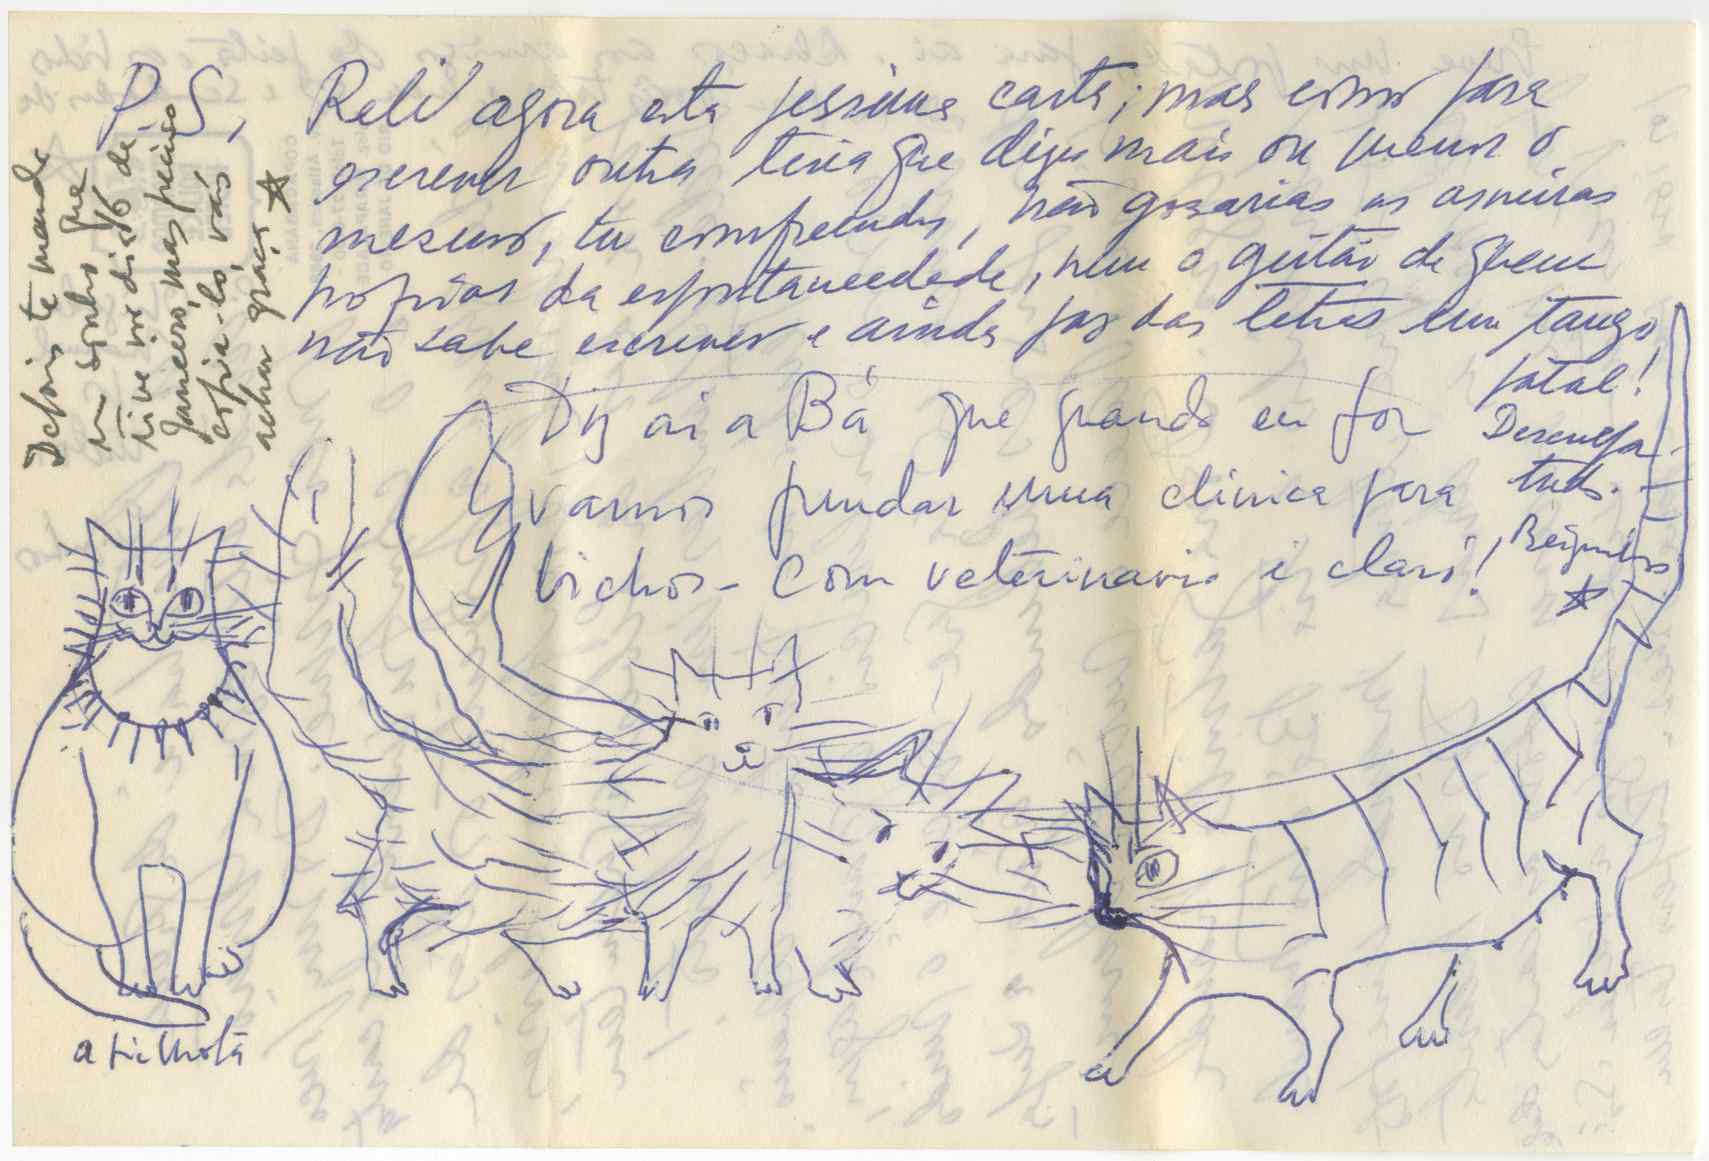 P.S, Reli agora esta pessima carta; mas como para
escrever outra teria que dizer mais ou menos o
mesmo, tu comprendes, não gozarias as asneiras
proprias da espontaneedade, nem o geitão de quem
não sabe escrever e ainda faz das letras um tango
fatal!
Desculpa
tudo.
Beijinhos
Diz ai a Bá que quando eu for
vamos fundar uma clinica para
bichos - com veterinario é claro!
Depois te mando
um sonho que
tive no dia 16 de
Janeiro, mas preciso
copia-lo, vais
achar graça
a filhota